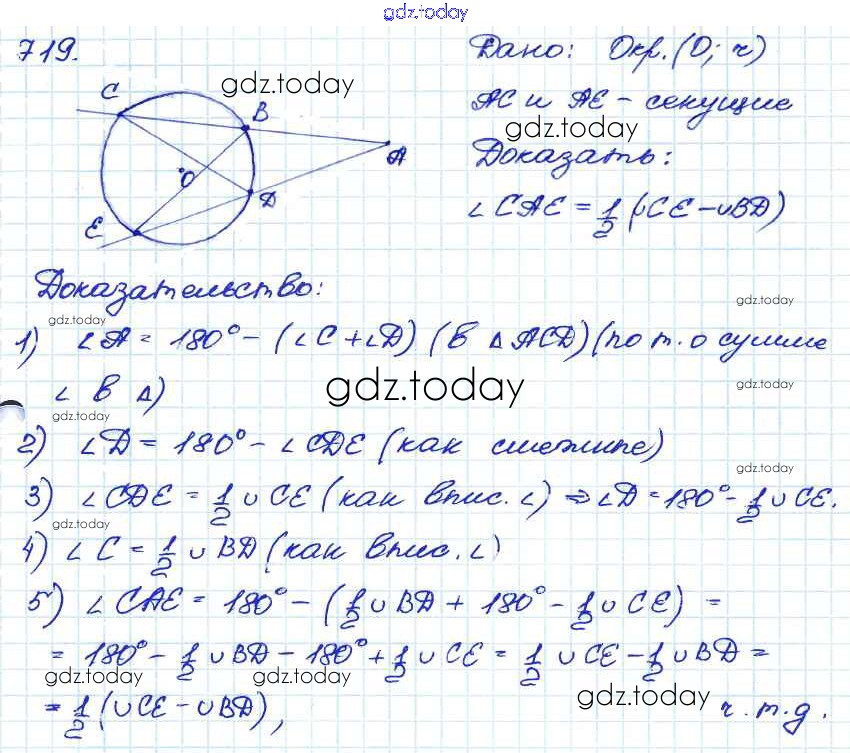 gdz.today
719.
Дано: Окр.(O; r)
gdz.today
C
B
AC и AE - секущие
gdz.today
A
Доказать:
O
D
E
∠CAE = 1/2 (∪CE - ∪BD)
Доказательство:
gdz.today
gdz.today
1) ∠A = 180° - (∠C + ∠D) (в △ACD) (по т. о сумме
∠ в △)
gdz.today
gdz.today
gdz.today
2) ∠D = 180° - ∠CDE (как смежные)
gdz.today
3) ∠CDE = 1/2 ∪CE (как впис. ∠) ⇒ ∠D = 180° - 1/2 ∪CE.
gdz.today
4) ∠C = 1/2 ∪BD (как впис. ∠)
gdz.today
5) ∠CAE = 180° - (1/2 ∪BD + 180° - 1/2 ∪CE) =
= 180° - 1/2 ∪BD - 180° + 1/2 ∪CE = 1/2 ∪CE - 1/2 ∪BD =
gdz.today
gdz.today
= 1/2 (∪CE - ∪BD), ч.т.д.